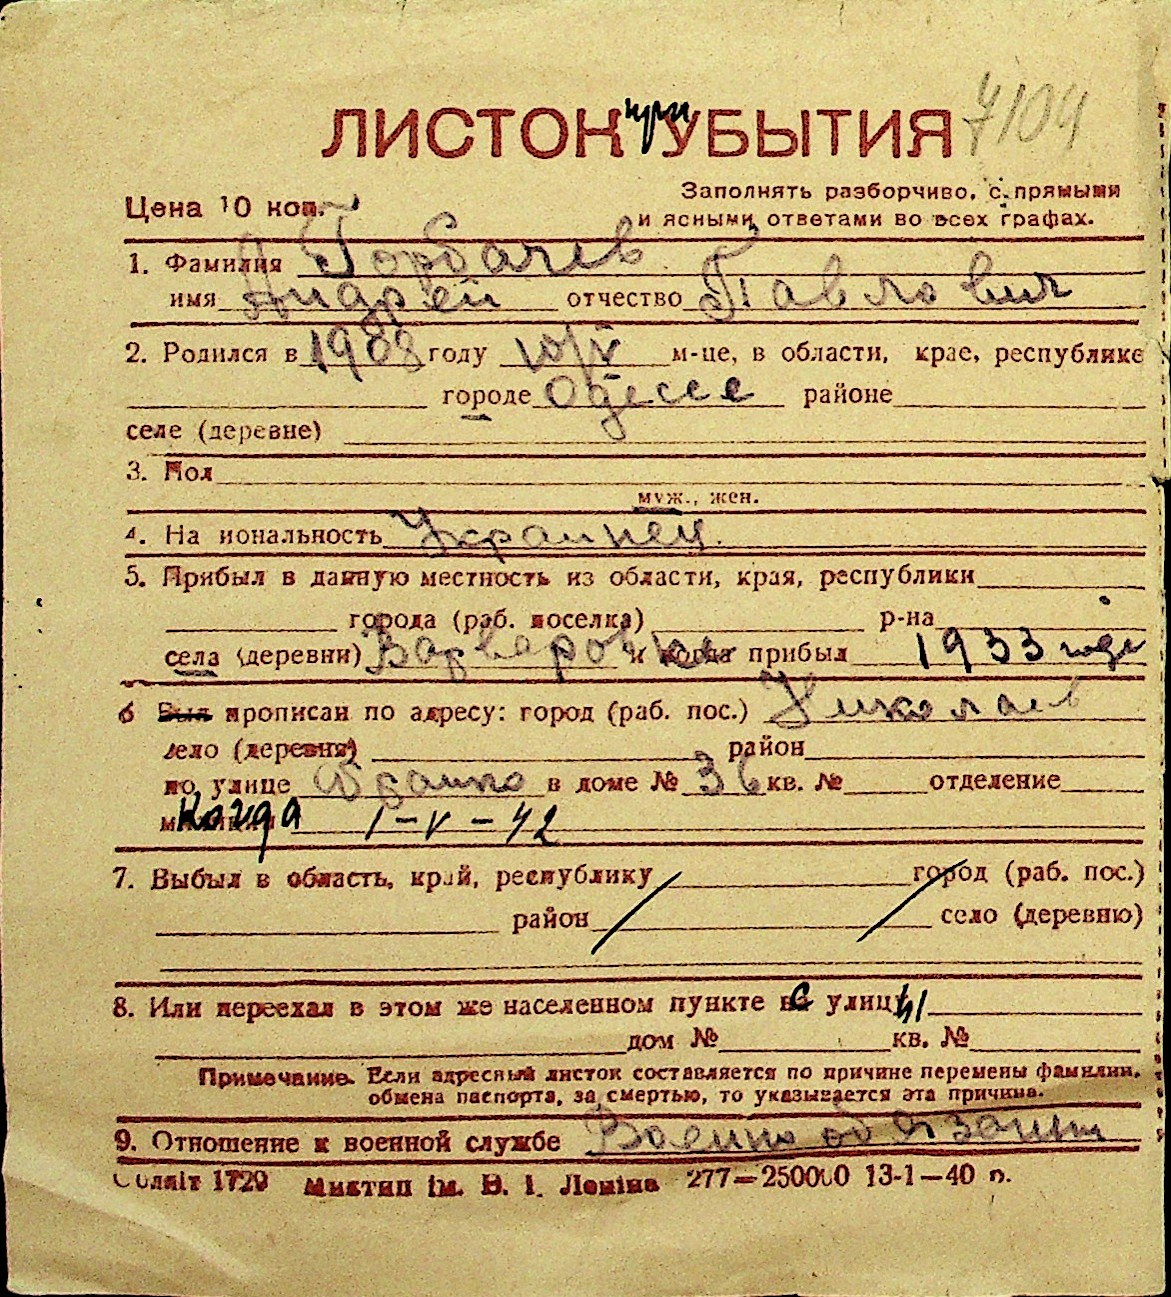 ЛИСТОК при УБЫТИЯ 7104
Цена 10 коп.
Заполнять разборчиво, с прямыми
и ясными ответами во всех графах.
1. Фамилия Горбачев
имя Андрей отчество Павлович
2. Родился в 1908 году м-це, в области, крае, республике
городе Одессе районе
селе (деревне)
3. Пол
муж., жен.
4. На иональность Украинец.
5. Прибыл в данную местность из области, края, республики
города (раб. поселка) р-на
села (деревни) Варваровка и когда прибыл 1933 году
6 Был прописан по адресу: город (раб. пос.) Николаев
село (деревня) район
по улице Франко в доме № 36 кв. № отделение
когда 1-V-42
7. Выбыл в область, край, республику город (раб. пос.)
район село (деревню)
8. Или переехал в этом же населенном пункте с улицы
дом № кв. №
Примечание. Если адресный листок составляется по причине перемены фамилии,
обмена паспорта, за смертью, то указывается эта причина.
9. Отношение к военной службе Военно обязант
Облліт 1729 Миктип ім. В. І. Леніна 277—250000 13-1—40 р.